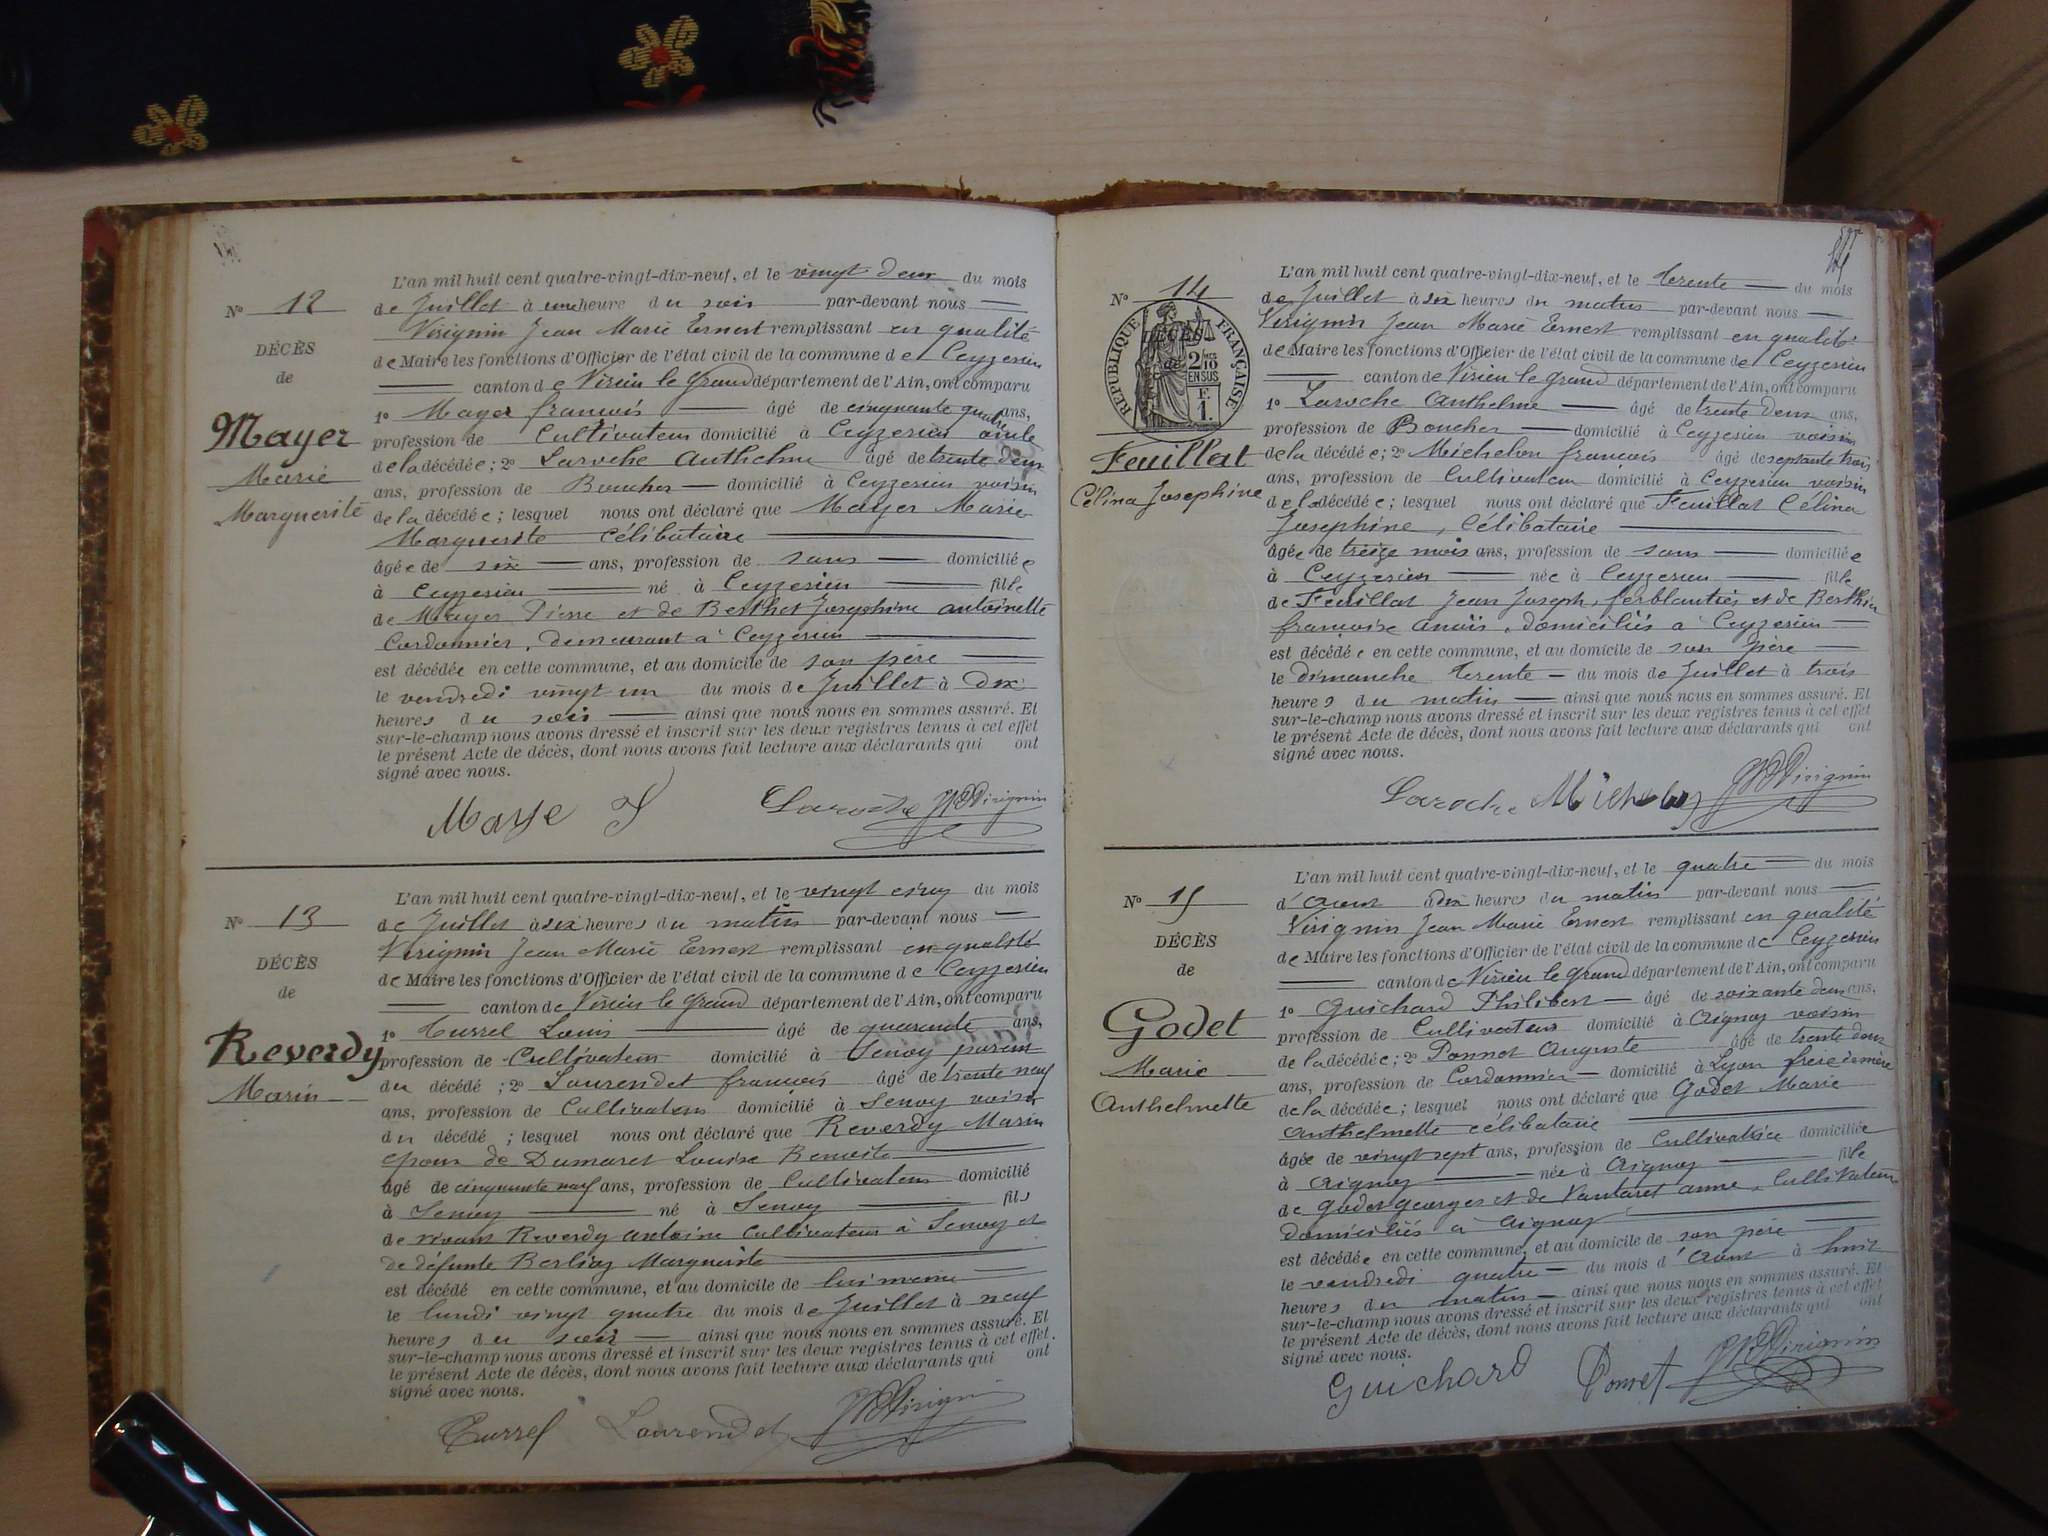 L'an mil huit cent quatre-vingt-dix-neuf, et le vingt deux du mois
No 12
de Juillet à une heure du soir par-devant nous
Virignin Jean Marie Ernest remplissant en qualité
DÉCÈS
de Maire les fonctions d'Officier de l'état civil de la commune de Ceyzerieu
de
canton de Virieu le Grand département de l'Ain, ont comparu
1o Mayer françois âgé de cinquante quatre ans,
Mayer
profession de Cultivateur domicilié à Ceyzerieu oncle
de la décédée; 2o Laroche Anthelme âgé de trente deux
Marie
ans, profession de Boucher domicilié à Ceyzerieu voisin
Marguerite
de la décédée; lesquel nous ont déclaré que Mayer Marie
Marguerite célibataire
âgée de six ans, profession de sans domiciliée
à Ceyzerieu né à Ceyzerieu fille
de Mayer Pierre et de Berthet Josephine antoinette
Cordonnier, demeurant à Ceyzerieu
est décédée en cette commune, et au domicile de son père
le vendredi vingt un du mois de Juillet à dix
heures du soir ainsi que nous nous en sommes assuré. Et
sur-le-champ nous avons dressé et inscrit sur les deux registres tenus à cet effet
le présent Acte de décès, dont nous avons fait lecture aux déclarants qui ont
signé avec nous.
Laroche Virignin
L'an mil huit cent quatre-vingt-dix-neuf, et le vingt cinq du mois
No 13
de Juillet à six heures du matin par-devant nous
Virignin Jean Marie Ernest remplissant en qualité
DÉCÈS
de Maire les fonctions d'Officier de l'état civil de la commune de Ceyzerieu
de
canton de Virieu le Grand département de l'Ain, ont comparu
1o Turrel Louis âgé de quarante ans,
Reverdy
profession de Cultivateur domicilié à Senoy parent
Marin
du décédé ; 2o Laurendet françois âgé de trente neuf
ans, profession de Cultivateur domicilié à Senoy voisin
du décédé ; lesquel nous ont déclaré que Reverdy Marin
époux de Dumaret Louise Benoite
âgé de cinquante neuf ans, profession de Cultivateur domicilié
à Senoy né à Senoy fils
de vivant Reverdy antoine Cultivateur à Senoy et
de défunte Berlioz Marguerite
est décédé en cette commune, et au domicile de lui même
le lundi vingt quatre du mois de Juillet à neuf
heures du soir ainsi que nous nous en sommes assuré. Et
sur-le-champ nous avons dressé et inscrit sur les deux registres tenus à cet effet.
le présent Acte de décès, dont nous avons fait lecture aux déclarants qui ont
signé avec nous.
Turrel Laurendet Virignin
L'an mil huit cent quatre-vingt-dix-neuf, et le trente du mois
No 14
de Juillet à six heures du matin par-devant nous
Virignin Jean Marie Ernest remplissant en qualité
RÉPUBLIQUE FRANÇAISE
DÉCÈS
de
2/10 EN SUS
F. 1.
de Maire les fonctions d'Officier de l'état civil de la commune de Ceyzerieu
canton de Virieu le Grand département de l'Ain, ont comparu
1o Laroche Anthelme âgé de trente deux ans,
profession de Boucher domicilié à Ceyzerieu voisin
Feuillat
de la décédée; 2o Michelon françois âgé de septante trois
Célina Josephine
ans, profession de Cultivateur domicilié à Ceyzerieu voisin
de la décédée; lesquel nous ont déclaré que Feuillat Célina
Josephine, Célibataire
âgée de treize mois ans, profession de sans domiciliée
à Ceyzerieu née à Ceyzerieu fille
de Feuillat Jean Joseph, ferblantier et de Berthier
françoise anaïs, domiciliés à Ceyzerieu
est décédée en cette commune, et au domicile de son père
le dimanche trente du mois de Juillet à trois
heures du matin ainsi que nous nous en sommes assuré. Et
sur-le-champ nous avons dressé et inscrit sur les deux registres tenus à cet effet
le présent Acte de décès, dont nous avons fait lecture aux déclarants qui ont
signé avec nous.
Laroche Michelon Virignin
L'an mil huit cent quatre-vingt-dix-neuf, et le quatre du mois
No 15
d'Aout à dix heures du matin par-devant nous
Virignin Jean Marie Ernest remplissant en qualité
DÉCÈS
de Maire les fonctions d'Officier de l'état civil de la commune de Ceyzerieu
de
canton de Virieu le Grand département de l'Ain, ont comparu
1o Guichard Philibert âgé de soixante deux ans,
Godet
profession de Cultivateur domicilié à Aignoz voisin
de la décédée; 2o Ponnet Auguste âgé de trente deux
Marie
ans, profession de Cordonnier domicilié à Lyon
Anthelmette
de la décédée; lesquel nous ont déclaré que Godet Marie
Anthelmette célibataire
âgée de vingt sept ans, profession de Cultivatrice domiciliée
à Aignoz née à Aignoz fille
de Godet georges et de Vantaret anne, Cultivateurs
domiciliés à Aignoz
est décédée en cette commune, et au domicile de son père
le vendredi quatre du mois d'Aout à huit
heures du matin ainsi que nous nous en sommes assuré. Et
sur-le-champ nous avons dressé et inscrit sur les deux registres tenus à cet effet
le présent Acte de décès, dont nous avons fait lecture aux déclarants qui ont
signé avec nous.
Guichard Ponnet Virignin